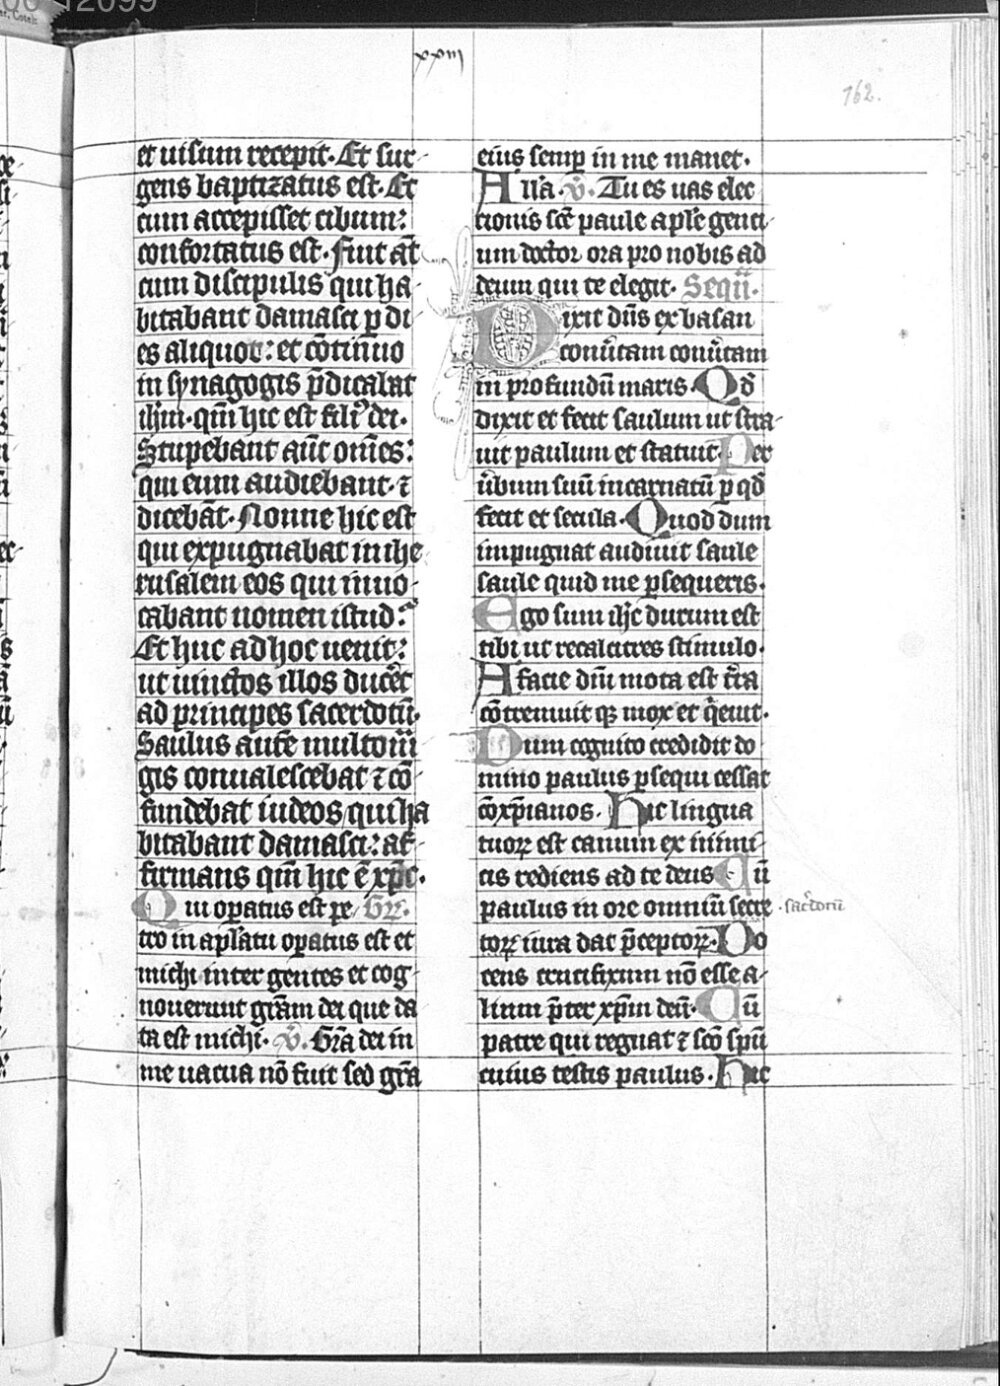 xxiii
162.
et uisum recepit. Et sur-
gens baptizatus est. Et
cum accepisset cibum:
confortatus est. Fuit aūt
cum discipulis qui ha-
bitabant damasci p̱ di-
es aliquot: et cōtinuo
in synagogis p̄dicabat
ihm̄. qm̄ hic est filiꝰ dei.
Stupebant aūt om̄es:
qui eum audiebant. ⁊
dicebāt. Nonne hic est
qui expugnabat in ihe
rusalem eos qui inuo-
cabant nomen istud:
Et huc ad hoc uenit:
ut uinctos illos duc̄et
ad principes sacerdotū.
Saulus autē multo m̄
gis conualescebat ⁊ cō
fundebat iudeos qui ha
bitabant damasci: af-
firmans qm̄ hic ē xp̄c.
Qui op̱atus est pe Gr̄.
tro in apl̄atu op̱atus est et
michi inter gentes et cog-
nouerunt gr̄am dei que da
ta est michi. v̄. Gr̄a dei in
me uacua nō fuit sed gr̄a
eius semp̱ in me manet.
All'a. v̄. Tu es uas elec
tionis sc̄e paule apl̄e genti-
um doctor ora pro nobis ad
deum qui te elegit. Seqn̄.
Dixit dn̄s ex basan
conu̇tam conu̇tam
in profundū maris. Qd̄
dixit et fecit saulum ut stra-
uit paulum et statuit. Per
u̇bum suū incarnatū p̱ qd̄
fecit et secula. Quod dum
impugnat audiuit saule
saule quid me p̱sequeris.
Ego sum ih̄c durum est
tibi ut recalcitres stimulo.
A facie dn̄i mota est t̄ra
cōtremuit qꝫ mox et q̇euit.
Dum cognito credidit do
mino paulus p̱sequi cessat
cōxp̄ianos. Hic lingua
tuoꝝ est canum ex inimi-
cis rediens ad te deus Cū
paulus in ore omniū secre ·sac̄dotū
toꝝ iura dat p̄ceptoꝝ. Do
cens crucifixum nō esse a-
lium p̄ter xp̄m deū. Cū
patre qui regnat ⁊ sc̄o sp̄u
cuius testis paulus. Hic